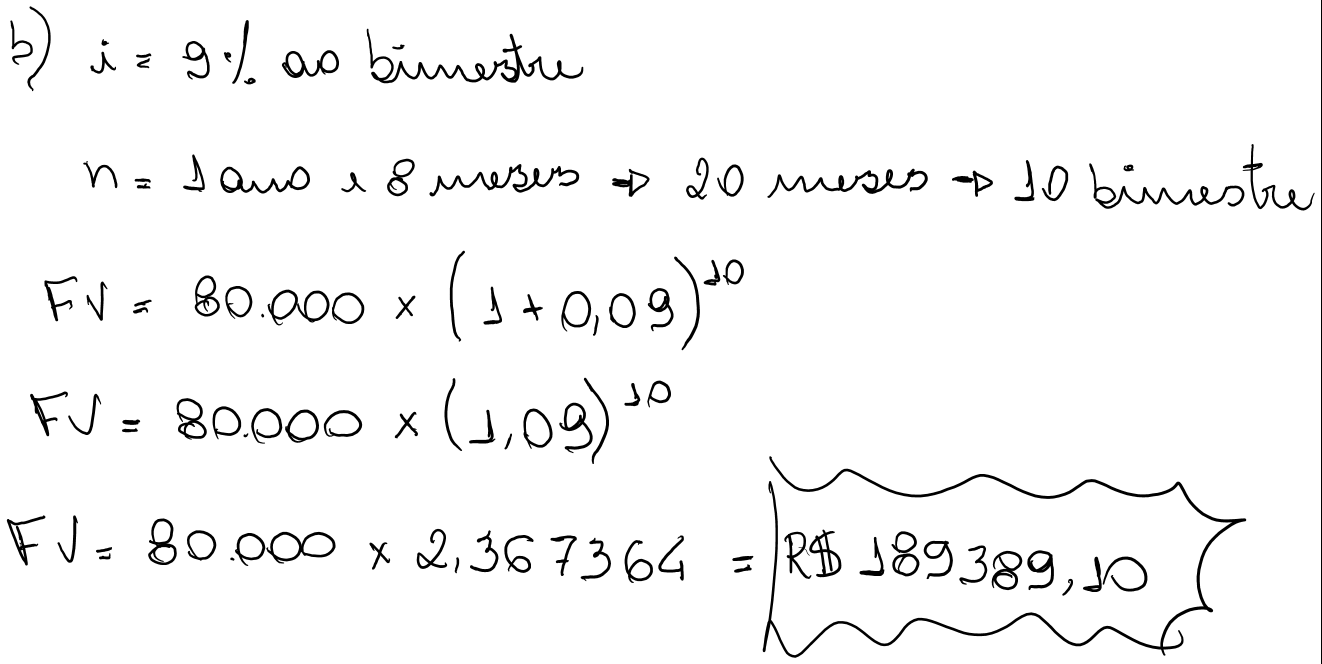 b) i = 9% ao bimestre
n = 1 ano e 8 meses ⇒ 20 meses → 10 bimestre
FV = 80.000 x (1 + 0,09)^10
FV = 80.000 x (1,09)^10
FV = 80.000 x 2,367364 = R$ 189389,10